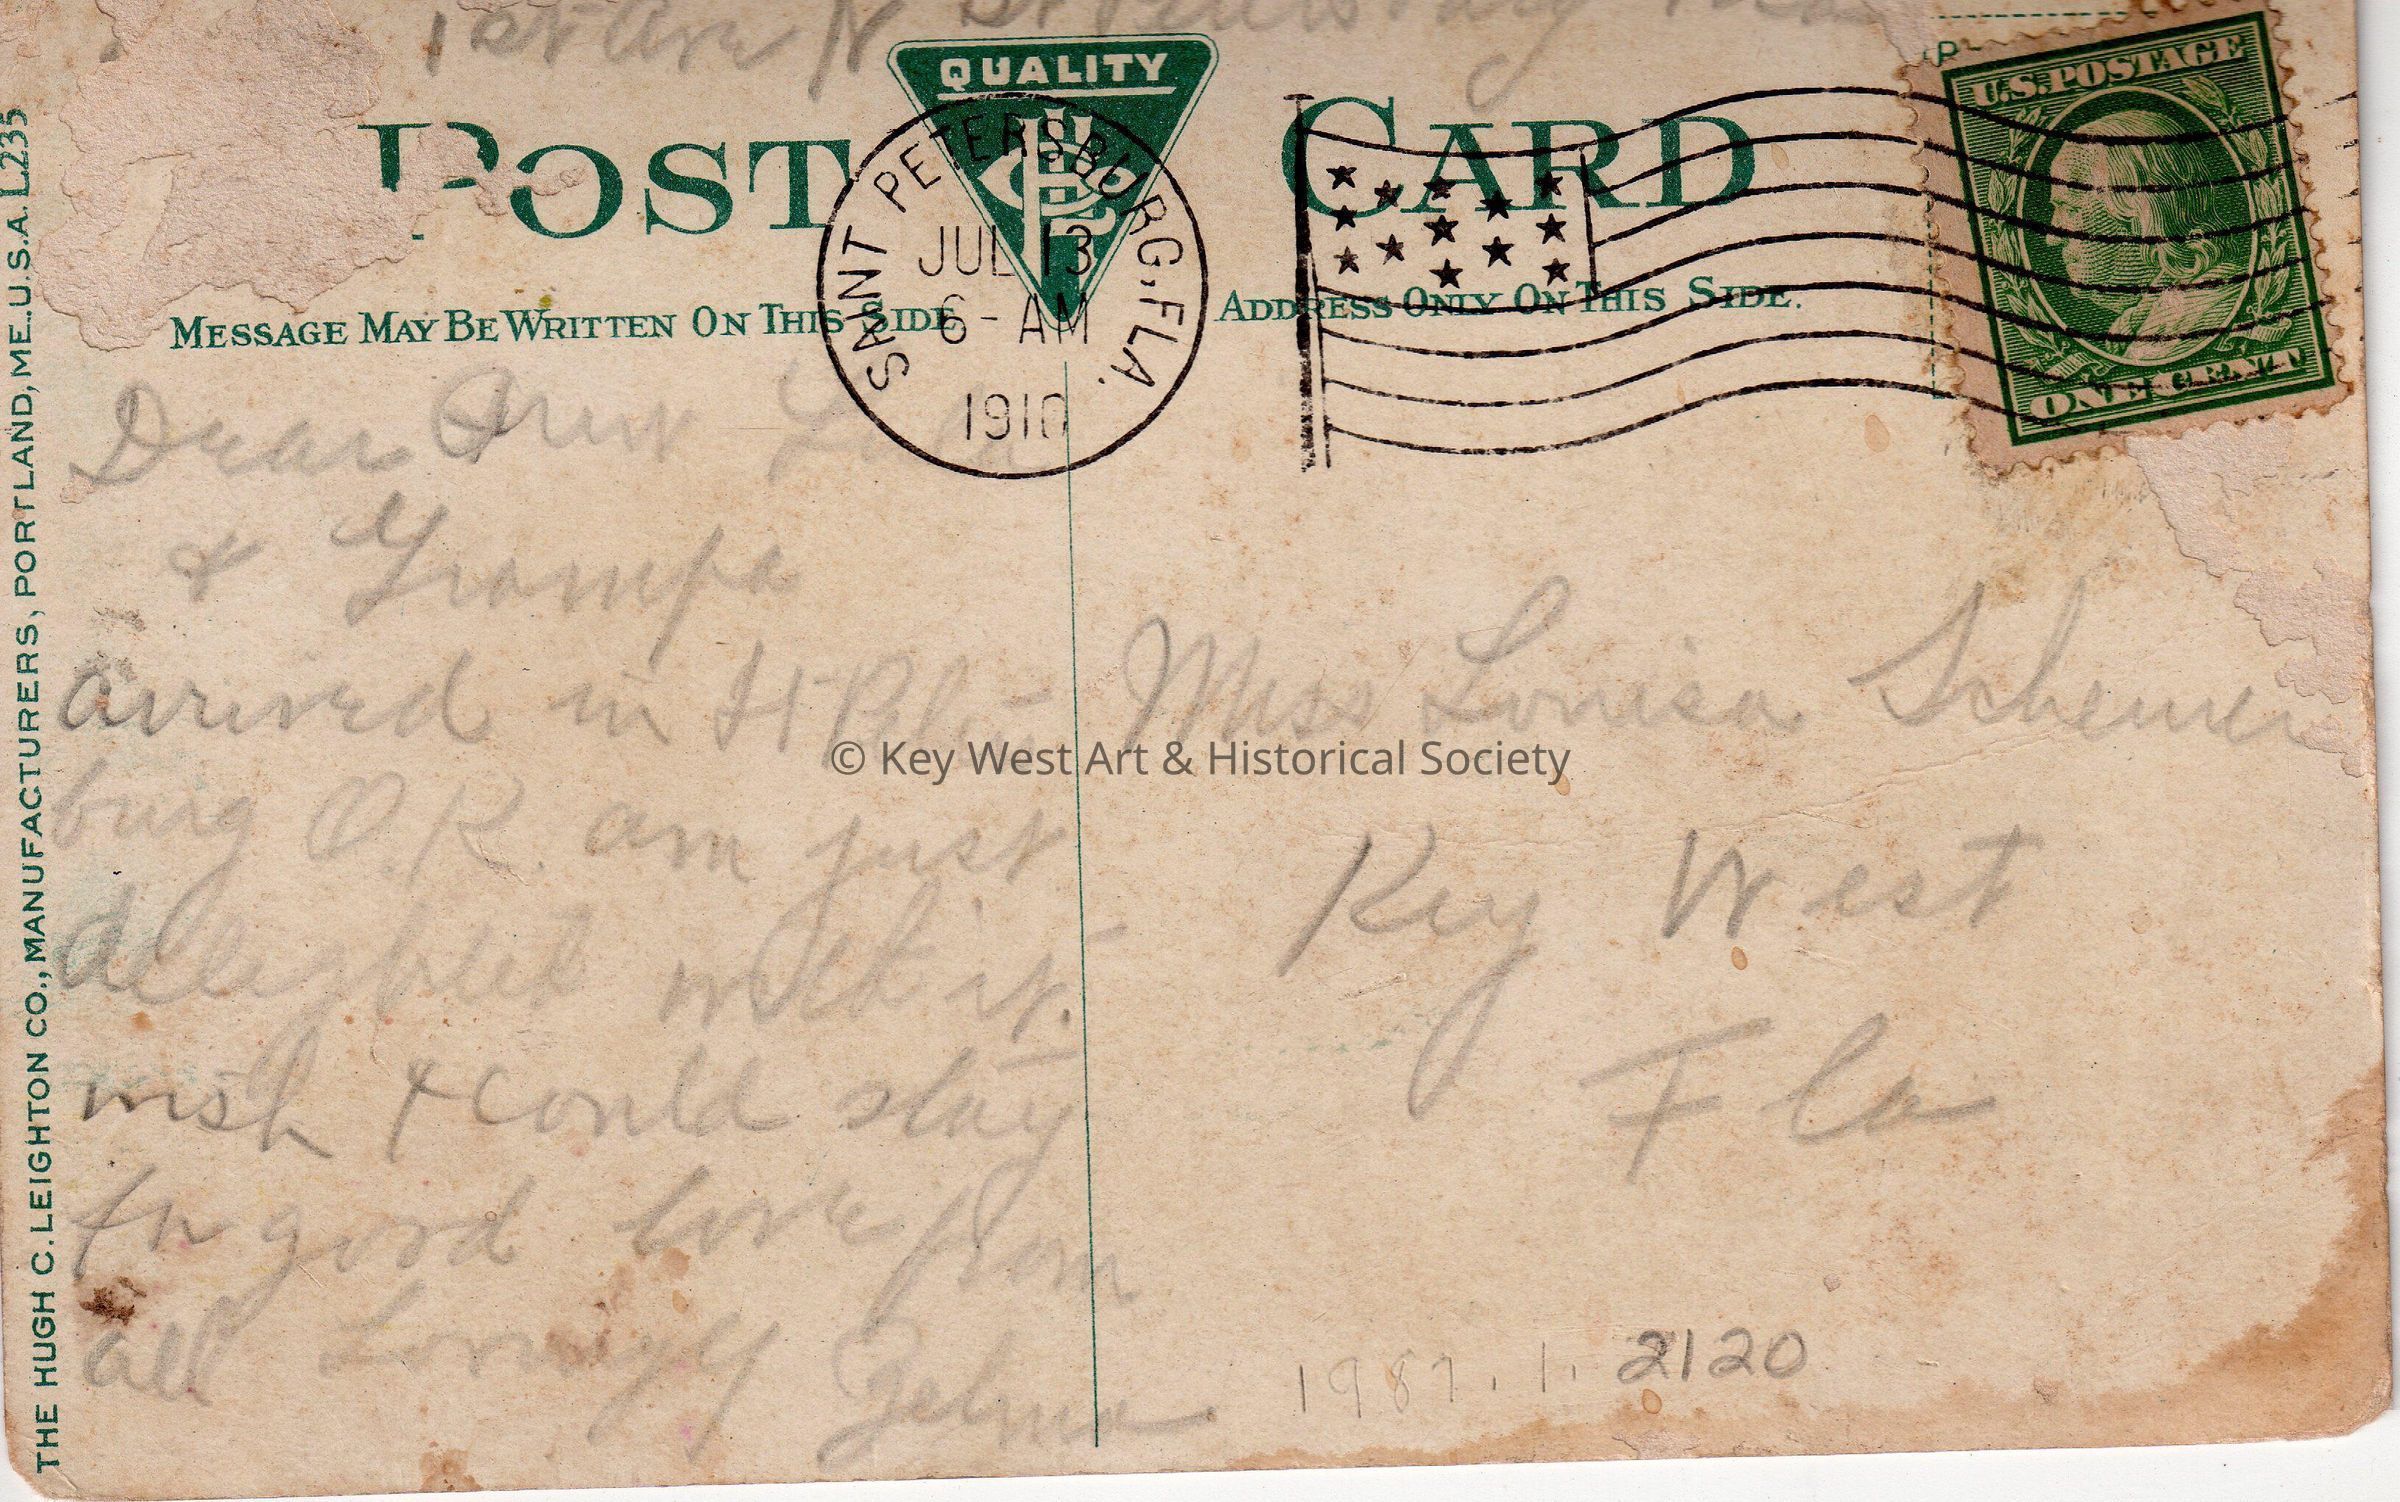 1st Ave N St Petersburg
QUALITY
POST CARD
U.S. POSTAGE
ONE CENT
SAINT PETERSBURG, FLA.
JUL 13
6 - AM
1910
MESSAGE MAY BE WRITTEN ON THIS SIDE
ADDRESS ONLY ON THIS SIDE.
THE HUGH C. LEIGHTON CO., MANUFACTURERS, PORTLAND, ME., U.S.A. L235
Dear Aunt
& Grampa
arrived in St Peters
burg O.K. am just
delighted with it.
wish I could stay
for good love from
all Lovingly
Zelma
Miss Louisa
Key West
Fla
© Key West Art & Historical Society
1987.1.2120